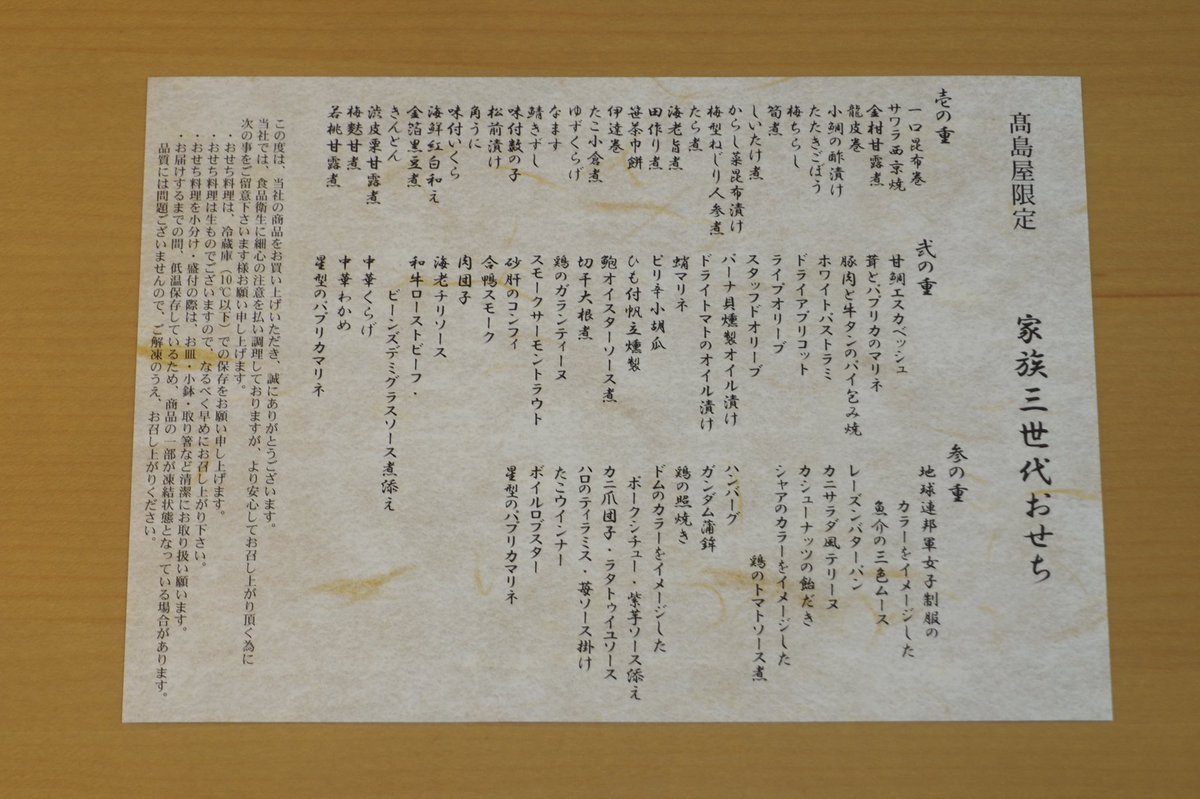 髙島屋限定
家族三世代おせち
壱の重
一口昆布巻
サワラ西京焼
金柑甘露煮
龍皮巻
小鯛の酢漬け
たたきごぼう
梅ちらし
筍煮
しいたけ煮
からし菜昆布漬け
梅型ねじり人参煮
たら煮
海老旨煮
田作り煮
笹茶巾餅
伊達巻
たこ小倉煮
ゆずくらげ
なます
鯖きずし
味付数の子
松前漬け
角うに
味付いくら
海鮮紅白和え
金箔黒豆煮
きんとん
渋皮栗甘露煮
梅麩甘煮
若桃甘露煮
弐の重
甘鯛エスカベッシュ
茸とパプリカのマリネ
豚肉と牛タンのパイ包み焼
ホワイトパストラミ
ドライアプリコット
ライプオリーブ
スタッフドオリーブ
バーナ貝燻製オイル漬け
ドライトマトのオイル漬け
蛸マリネ
ピリ辛小胡瓜
ひも付帆立燻製
鮑オイスターソース煮
切干大根煮
鶏のガランティーヌ
スモークサーモントラウト
砂肝のコンフィ
合鴨スモーク
肉団子
海老チリソース
和牛ローストビーフ・
ビーンズデミグラスソース煮添え
中華くらげ
中華わかめ
星型のパプリカマリネ
参の重
地球連邦軍女子制服の
カラーをイメージした
魚介の三色ムース
レーズンバターパン
カニサラダ風テリーヌ
カシューナッツの飴だき
シャアのカラーをイメージした
鶏のトマトソース煮
ハンバーグ
ガンダム蒲鉾
鶏の照焼き
ドムのカラーをイメージした
ポークシチュー・紫芋ソース添え
カニ爪団子・ラタトゥイユソース
ハロのティラミス・苺ソース掛け
たこウインナー
ボイルロブスター
星型のパプリカマリネ
この度は、当社の商品をお買い上げいただき、誠にありがとうございます。
当社では、食品衛生に細心の注意を払い調理しておりますが、より安心してお召し上がり頂く為に
次の事をご留意下さいます様お願い申し上げます。
・おせち料理は、冷蔵庫（10℃以下）での保存をお願い申し上げます。
・おせち料理は生ものでございますので、なるべく早めにお召し上がり下さい。
・おせち料理を小分け・盛付の際は、お皿・小鉢・取り箸など清潔にお取り扱い願います。
・お届けするまでの間、低温保存しているため、商品の一部が凍結状態となっている場合があります。
品質には問題ございませんので、ご解凍のうえ、お召し上がりください。